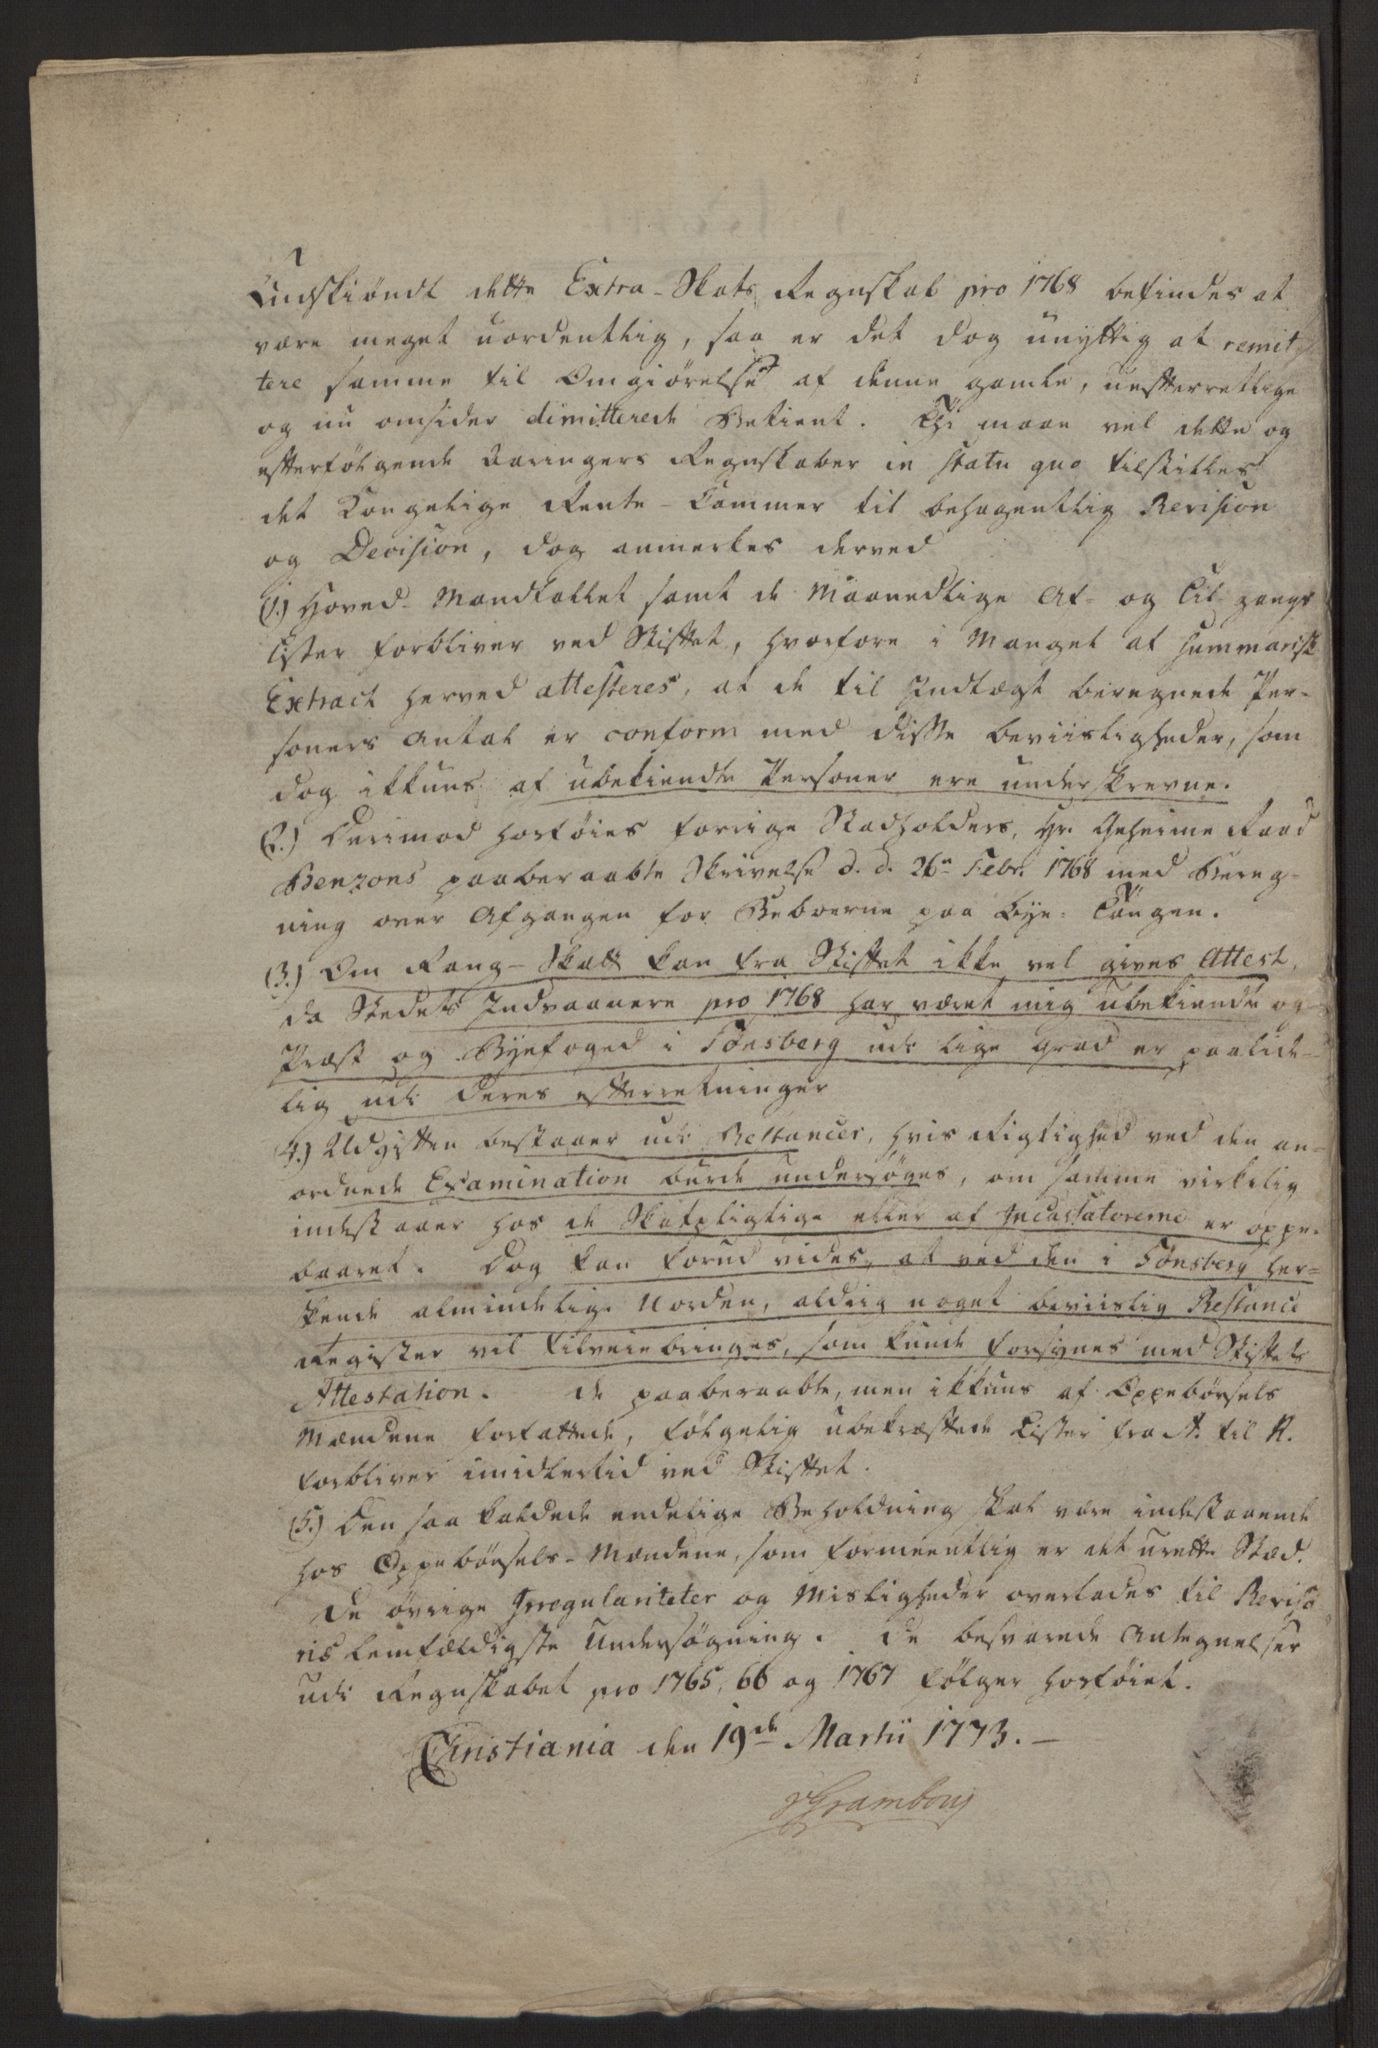 Endskiöndt dette Extra-Skats Regnskab pro 1768 befindes at
være meget uordentlig, saa er det dog unyttig at remit-
tere samme til Omgiörelse af denne gamle, uefterrettlige
og nu omsider dimitterede Betient. Thi maae vel dette og
efterfölgende Aaringers Regnskaber in statu quo tilstilles
det Kongelige Rente-Cammer til behagentlig Revision
og Decision, dog anmerkes derved
(1.) Hoved-Mandtallet samt de Maanedlige Af- og Til-gangs
Lister forbliver ved Stiftet, hvorfore i Mangel af summarisk
Extract herved attesteres, at de til Indtægt beregnede Per-
soners Antal er conform med disse Beviisligheder, som
dog ikkuns af ubekiendte Personer ere underskrevne.
(2.) Derimod hosföies forrige Stadholders, Hr. Geheime Raad
Benzons paaberaabte Skrivelse d. d. 26n Febr. 1768 med Bereg-
ning over Afgangen for Beboerne paa Bye-Löngen.
(3.) Om Rang-Skatt kan fra Stiftet ikke vel gives Attest,
da Stedets Indvaanere pro 1768 har været mig ubekiendte og
Præst og Byefoged i Tönsberg udi lige Grad er paalide-
lig udi deres efterretninger
4.) Udgiften bestaaer udi Restancer, hvis Rigtighed ved den an-
ordnede Examination burde undersöges, om samme virkelig
indestaaer hos de Skatpligtige eller af Incassatorerne er oppe-
baaret. Dog kan forud vides, at ved den i Tönsberg her-
skende almindelige Uorden, aldrig noget beviislig Restance
Register vil tilveiebringes, som kunde forsynes med Stiftets
Attestation. De paaberaabte, men ikkuns af Oppebörsels
Mændene forfattede, fölgelig ubekræftede Lister fra A. til R.
forbliver imidlertid ved Stiftet.
(5.) Den saa kaldede endelige Beholdning skal være indestaaende
hos Oppebörsels-Mændene, som formeentlig er det urette Stæd.
De övrige Irregulariteter og Misligheder overlades til Reviso-
ris lemfældigste Undersögning. De besvarede Antegnelser
udi Regnskabet pro 1765, 66 og 1767 fölger hosföiet.
Christiania den 19de Martii 1773.
vGrambow